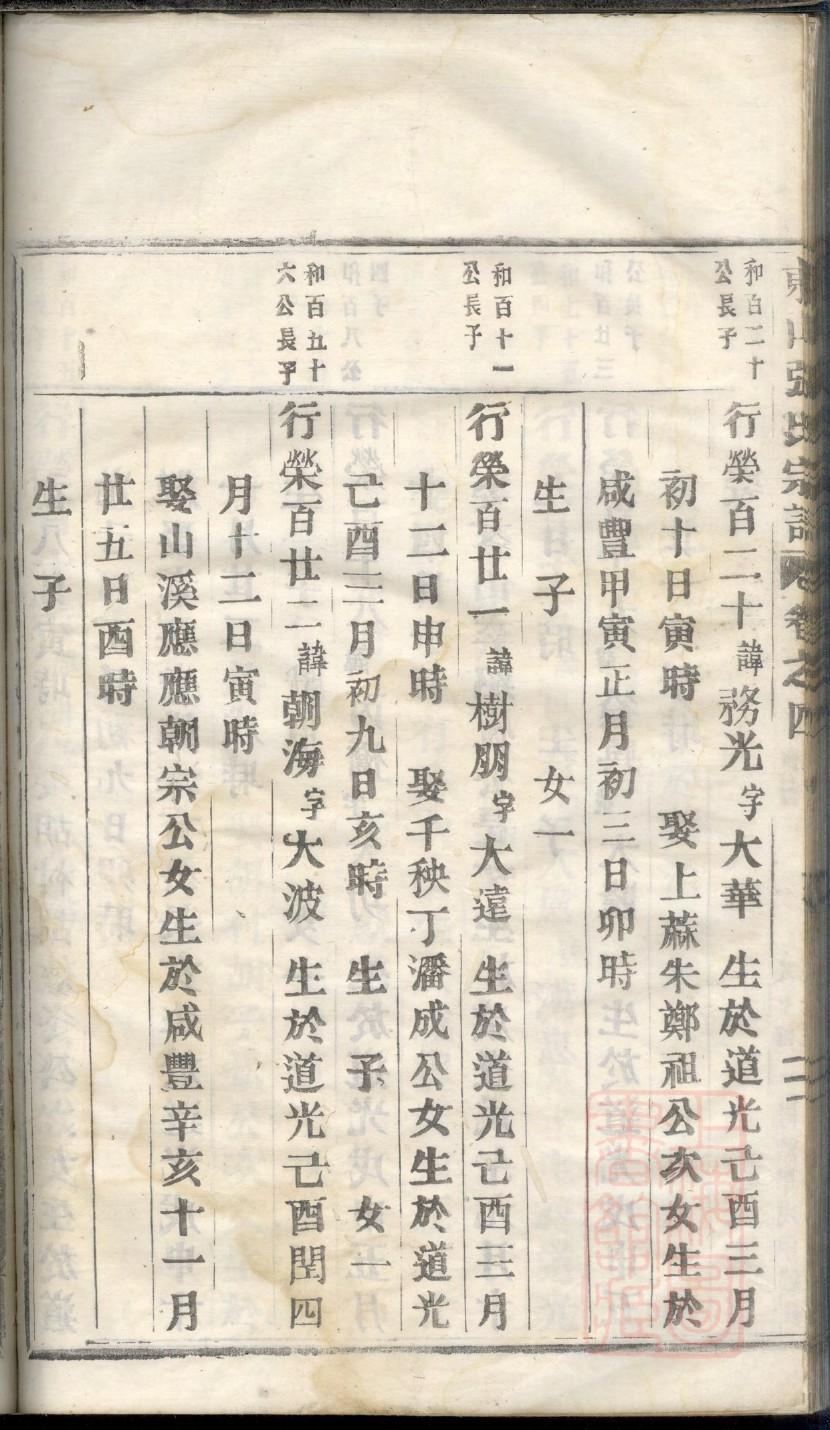 東山張氏宗譜 卷之四
和百二十
公長子
行榮百二十諱務光字大華 生於道光己酉三月
初十日寅時 娶上蔴朱鄭祖公次女生於
咸豐甲寅正月初三日卯時
生子 女一
和百十一
公長子
行榮百廿一諱樹朋字大遠 生於道光己酉三月
十二日申時 娶千秧丁潘成公女生於道光
己酉三月初九日亥時 生子 女一
和百五十
六公長子
行榮百廿二諱朝海字大波 生於道光己酉閏四
月十二日寅時
娶山溪應應朝宗公女生於咸豐辛亥十一月
廿五日酉時
生子